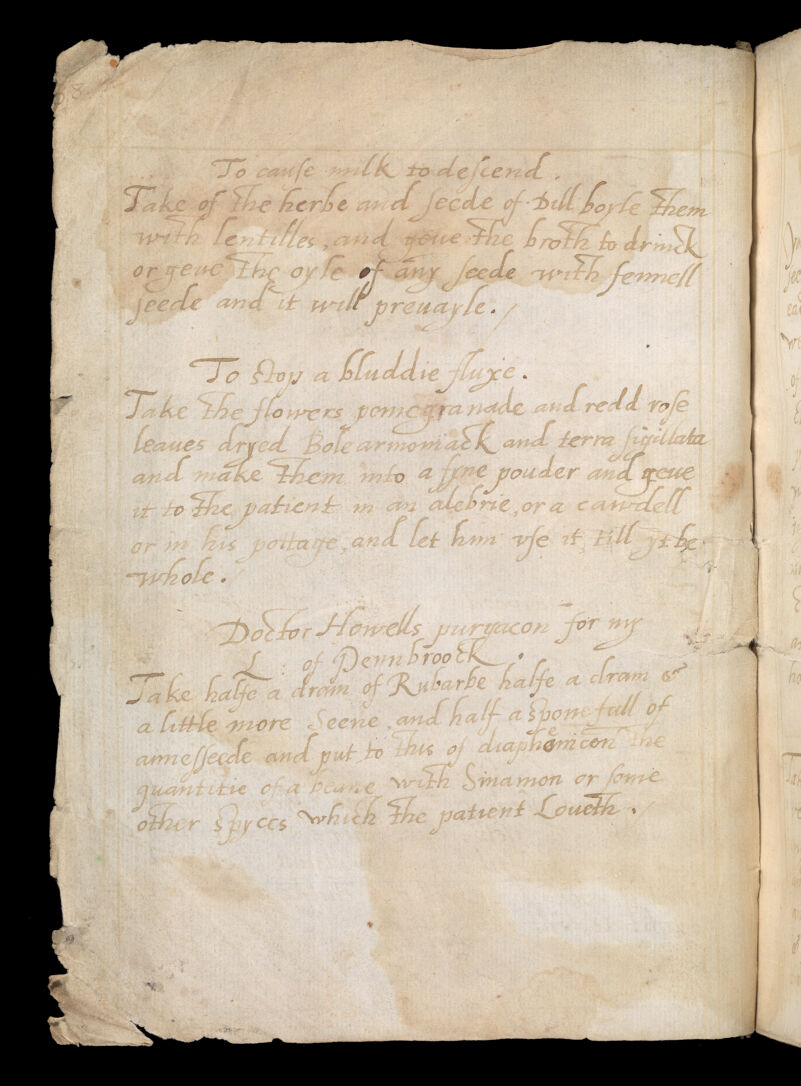 To cause milk to descend.
Take of the herbe and seede of Dill boyle them
with lentilles, and geue the broth to drinck
or geue the oyle of any seede with fennell
seede and it will preuayle./
To stop a bluddie fluxe.
Take the flowers pomegranade and redd rose
leaues dryed Bolearmoniack and terra sigillata
and make them into a fyne pouder and geue
it to the patient in an alebrie, or a cawdell
or in his pottage, and let him vse it till yt be
whole.
Doctor Howells purgacon for my
L: of Pennbroock.
Take halfe a dram of Rubarbe halfe a dram &
a little more Seene, and half a sponefull of
annesseede and put to this of diaphenicon the
quantitie of a beane with Sinamon or some
other spyces which the patient Loueth./